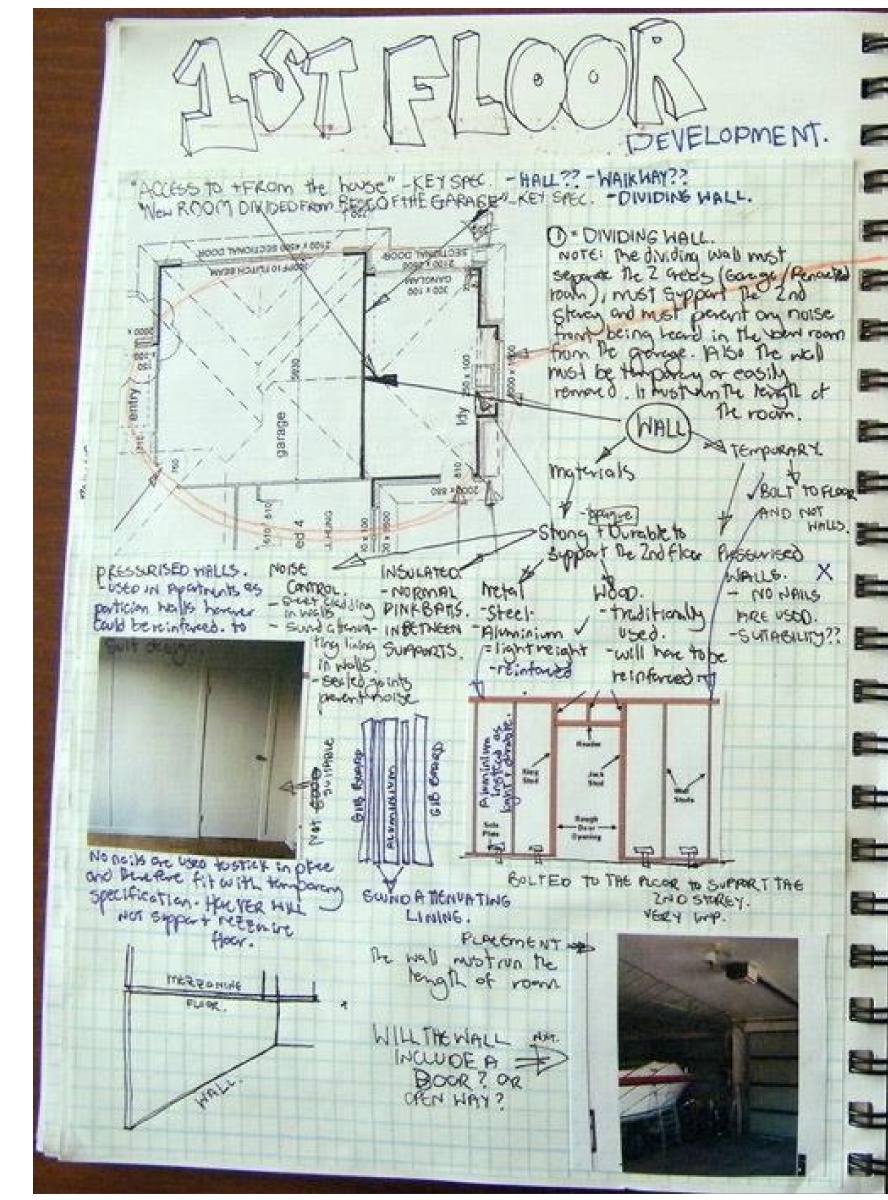 1ST FLOOR
DEVELOPMENT.
"ACCESS TO + FROM the house" - KEY SPEC. - HALL?? - WALKWAY??
"New ROOM DIVIDED FROM REST OF THE GARAGE" - KEY SPEC. - DIVIDING WALL.
2100 x 4500 SECTIONAL DOOR
FLITCH BEAM
SECTIONAL DOOR
GANGLAM
300 x 100
entry
garage
5930
ldy
760
810
2000 x 880
610
610
ed 4
① = DIVIDING WALL.
NOTE: The dividing wall must
separate the 2 areas (Garage/Renovated
room), must support the 2nd
storey and must prevent any noise
from being heard in the room
from the garage. Also the wall
must be temporary or easily
removed. It must run the length of
the room.
WALL
materials
TEMPORARY.
BOLT TO FLOOR
AND NOT
WALLS.
- opaque
Strong + Durable to
support the 2nd floor
PRESSURISED
WALLS. X
- NO NAILS
ARE USED.
- SUITABILITY??
PRESSURISED WALLS.
- USED IN Apartments as
partician walls however
could be reinforced. to
suit design.
NOISE
CONTROL.
- sheet cladding
in walls
- sound attenua-
ting lining
in walls.
- sealed joints
prevent noise
INSULATED.
- NORMAL
PINK BATS.
IN BETWEEN
SUPPORTS.
Metal
- Steel.
- Aluminium ✓
= lightweight
- reinforced
WOOD.
- traditionally
used.
- will have to be
reinforced
NOT
SUITABLE
GIB BOARD
ALUMINIUM
GIB BOARD
SOUND ATTENUATING
LINING.
Aluminium
instead as
light + durable.
Header
King
Stud
Jack
Stud
Wall
Studs
Sole
Plate
Rough
Door
Opening
BOLTED TO THE FLOOR TO SUPPORT THE
2ND STOREY.
VERY IMP.
No nails are used to stick in place
and therefore fit with temporary
specification. HOWEVER WILL
NOT support mezzanine
floor.
MEZZANINE
FLOOR.
WALL.
PLACEMENT
The wall must run the
length of room
WILL THE WALL
INCLUDE A
DOOR? OR
OPEN WAY?
NXT.